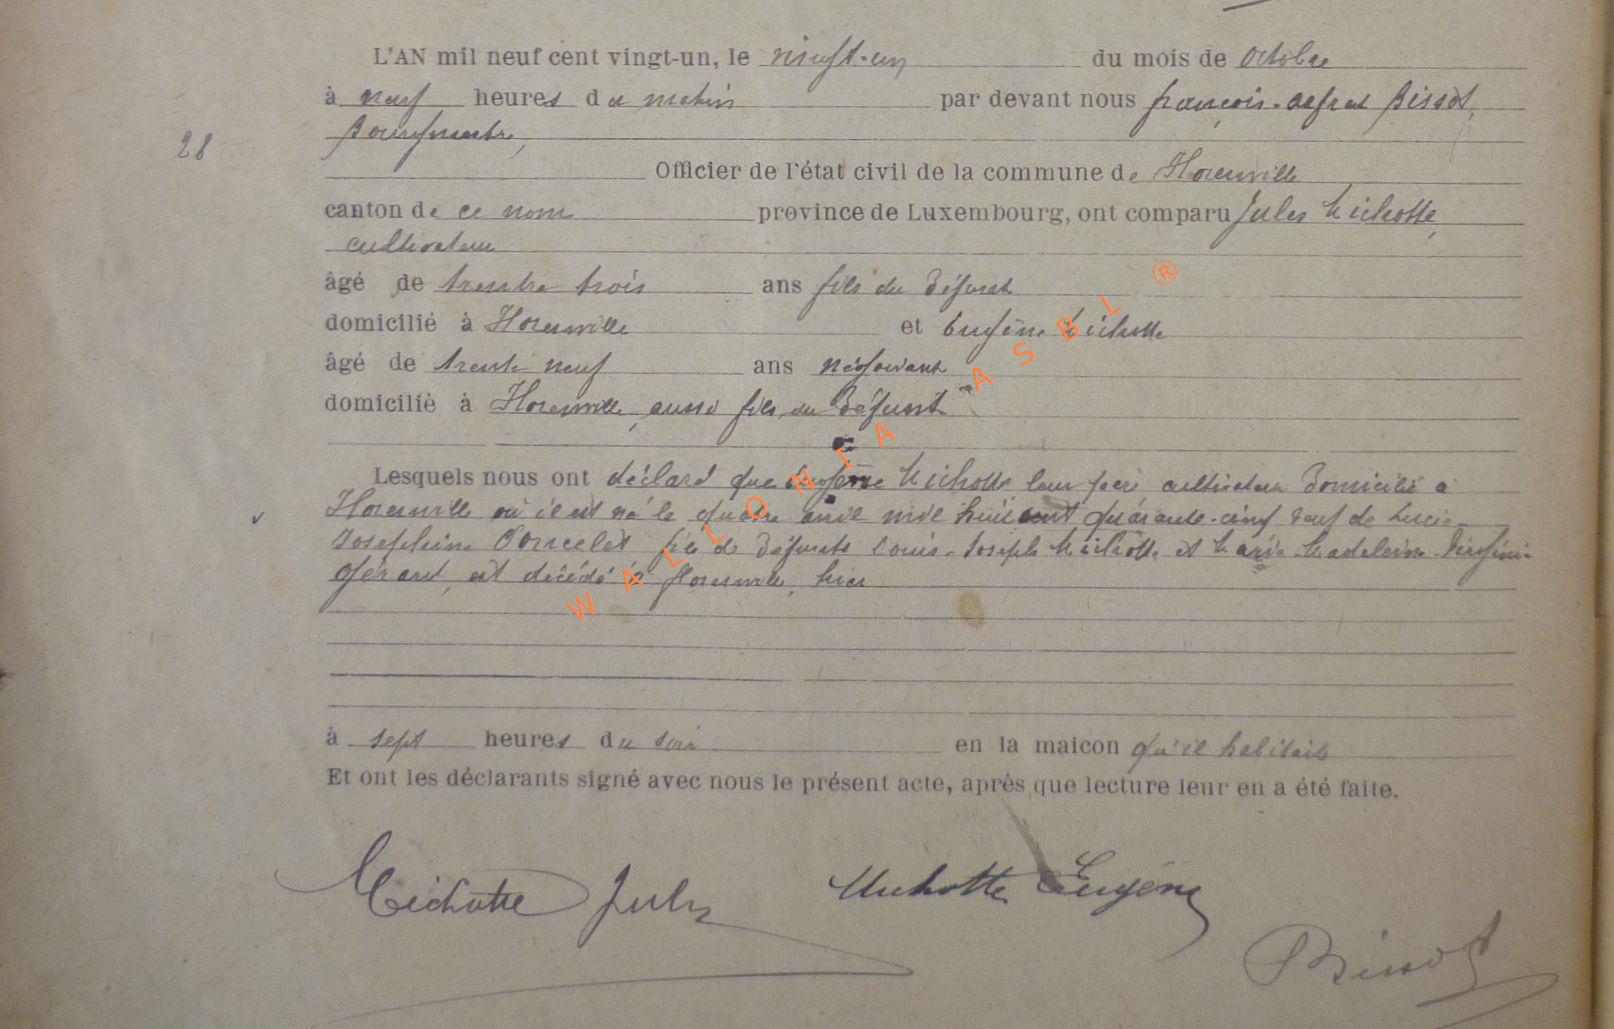 L'AN mil neuf cent vingt-un, le vingt-un du mois de octobre
à neuf heures du matin par devant nous françois-alfred Bissot,
Bourgmestre,
28
Officier de l'état civil de la commune de Florenville
canton de ce nom province de Luxembourg, ont comparu Jules Michotte,
cultivateur
âgé de trente trois ans fils du défunt
domicilié à Florenville et Eugène Michotte
âgé de trente neuf ans négociant
domicilié à Florenville, aussi fils du défunt
Lesquels nous ont déclaré que Eugène Michotte leur père cultivateur domicilié à
Florenville où il est né le quatre avril mil huit cent quarante-cinq veuf de Lucie-
Joséphine Poncelet fils de défunts Louis-Joseph Michotte et Marie-Madeleine-Virginie
Gérard, est décédé à florenville, hier
à sept heures du soir en la maicon qu'il habitait
Et ont les déclarants signé avec nous le présent acte, après que lecture leur en a été faite.
Michotte Jules Michotte Eugène
Bissot
WALLONIA ASBL ®